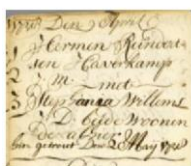 1730 Den April
Harmen Reinderts
sen Haverkamp
J M met
Stephania Willems
J D beide Woonen
de
sijn getrout Den 2 Maij 1730